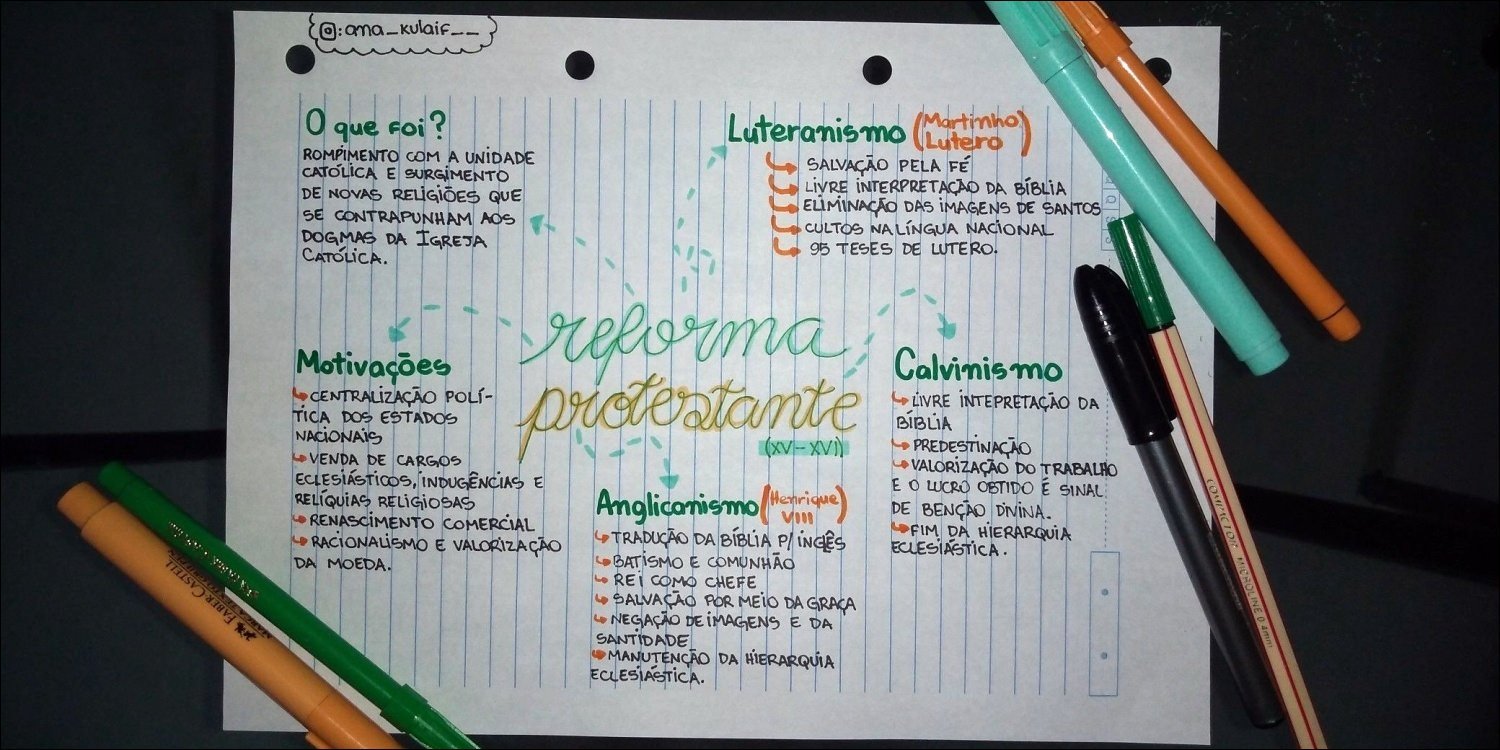 :ana_kulaif__
O que foi?
ROMPIMENTO COM A UNIDADE
CATÓLICA E SURGIMENTO
DE NOVAS RELIGIÕES QUE
SE CONTRAPUNHAM AOS
DOGMAS DA IGREJA
CATÓLICA.
Luteranismo (Martinho
Lutero)
SALVAÇÃO PELA FÉ
LIVRE INTERPRETAÇÃO DA BÍBLIA
ELIMINAÇÃO DAS IMAGENS DE SANTOS
CULTOS NA LÍNGUA NACIONAL
95 TESES DE LUTERO.
reforma
protestante
(XV-XVI)
Motivações
CENTRALIZAÇÃO POLÍ-
TICA DOS ESTADOS
NACIONAIS
VENDA DE CARGOS
ECLESIÁSTICOS, INDUGÊNCIAS E
RELÍQUIAS RELIGIOSAS
RENASCIMENTO COMERCIAL
RACIONALISMO E VALORIZAÇÃO
DA MOEDA.
Anglicanismo (Henrique
VIII)
TRADUÇÃO DA BÍBLIA P/ INGLÊS
BATISMO E COMUNHÃO
REI COMO CHEFE
SALVAÇÃO POR MEIO DA GRAÇA
NEGAÇÃO DE IMAGENS E DA
SANTIDADE
MANUTENÇÃO DA HIERARQUIA
ECLESIÁSTICA.
Calvinismo
LIVRE INTEPRETAÇÃO DA
BÍBLIA
PREDESTINAÇÃO
VALORIZAÇÃO DO TRABALHO
E O LUCRO OBTIDO É SINAL
DE BENÇÃO DIVINA.
FIM DA HIERARQUIA
ECLESIÁSTICA.
FABER-CASTELL
COMPACTOR MICROLINE 0.4mm